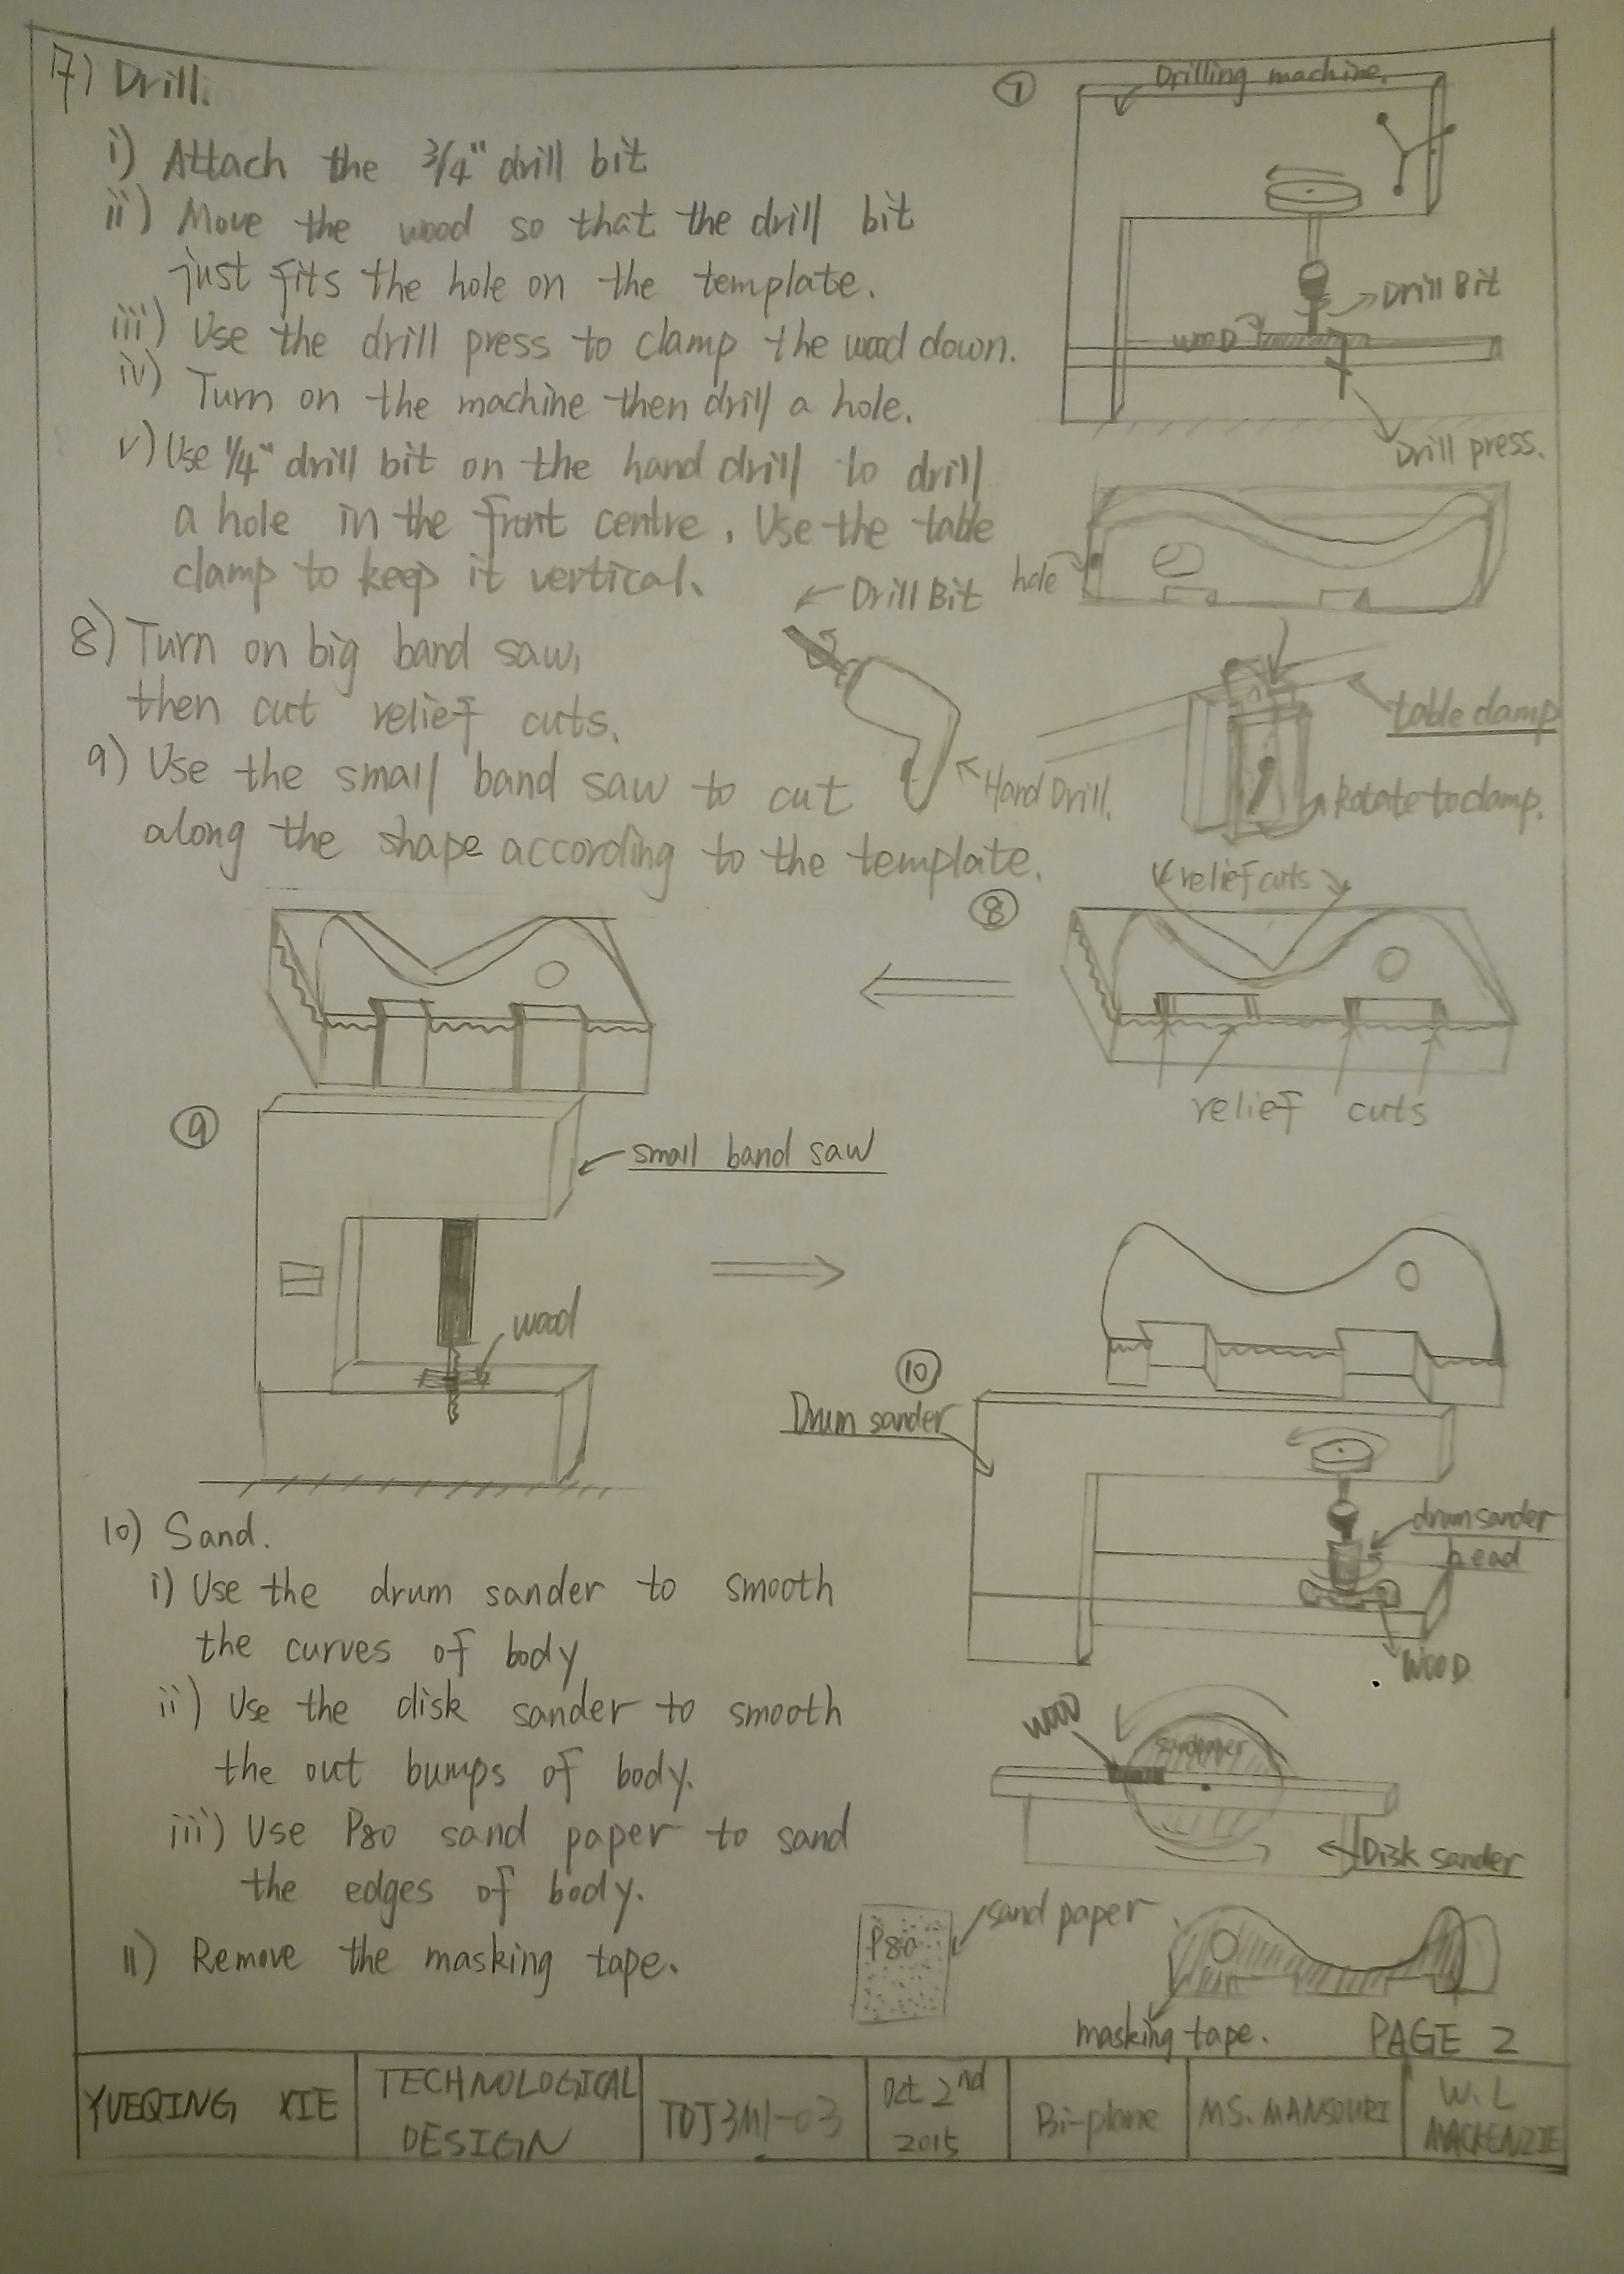 7) Drill.
i) Attach the 3/4" drill bit
ii) Move the wood so that the drill bit
just fits the hole on the template.
iii) Use the drill press to clamp the wood down.
iv) Turn on the machine then drill a hole.
v) Use 1/4" drill bit on the hand drill to drill
a hole in the front centre. Use the table
clamp to keep it vertical.
7
Drilling machine.
Drill Bit
WOOD
Drill press.
hole
Drill Bit
Hand Drill.
table clamp
Rotate to clamp.
8) Turn on big band saw,
then cut relief cuts.
9) Use the small band saw to cut
along the shape according to the template.
8
relief cuts
relief cuts
9
small band saw
wood
10
Drum sander
drum sander
head
WOOD
10) Sand.
i) Use the drum sander to smooth
the curves of body
ii) Use the disk sander to smooth
the out bumps of body.
iii) Use P80 sand paper to sand
the edges of body.
11) Remove the masking tape.
WOOD
sandpaper
Disk sander
P80
sand paper
masking tape.
PAGE 2
YUEQING XIE
TECHNOLOGICAL
DESIGN
TDJ3M1-03
Oct 2nd
2015
Bi-plane
MS. MANSOURI
W. L
MACKENZIE